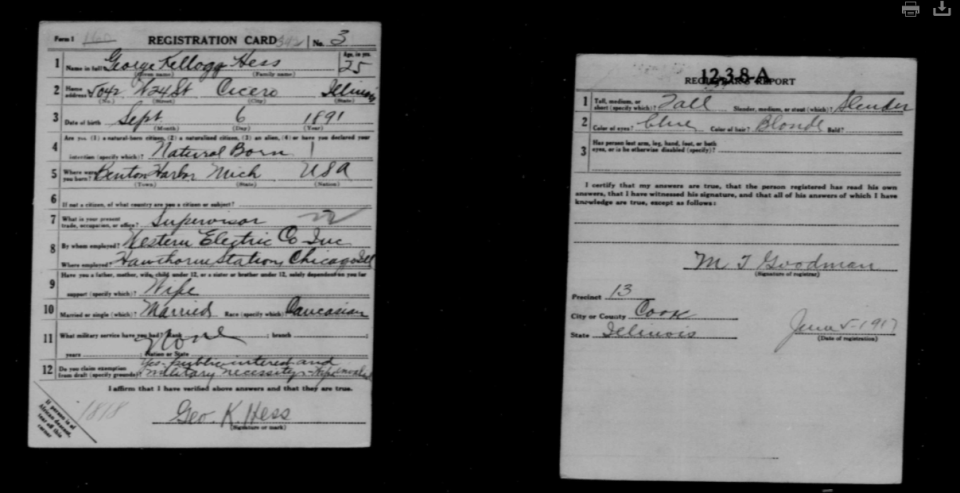 Form 1 REGISTRATION CARD No. 3
1 Name in full George Kellogg Hess Age, in yrs. 25
(Given name) (Family name)
2 Home address 5042 W 24 St Cicero Illinois
(No.) (Street) (City) (State)
3 Date of birth Sept 6 1891
(Month) (Day) (Year)
Are you (1) a natural-born citizen, (2) a naturalized citizen, (3) an alien, (4) or have you declared your
4 intention (specify which)? Natural Born
5 Where were you born? Benton Harbor Mich USA
(Town) (State) (Nation)
6 If not a citizen, of what country are you a citizen or subject?
7 What is your present trade, occupation, or office? Supervisor
8 By whom employed? Western Electric Co Inc
Where employed? Hawthorne Station, Chicago Ill
Have you a father, mother, wife, child under 12, or a sister or brother under 12, solely dependent on you for
9 support (specify which)? Wife
10 Married or single (which)? Married Race (specify which)? Caucasian
11 What military service have you had? Rank None branch
years Nation or State
12 Do you claim exemption from draft (specify grounds)? Yes public interest and
military necessity
I affirm that I have verified above answers and that they are true.
1818
Geo. K. Hess
(Signature or mark)
If person is of African descent, tear off this corner
1238-A
REGISTRAR'S REPORT
1 Tall, medium, or short (specify which)? Tall Slender, medium, or stout (which)? Slender
2 Color of eyes? Blue Color of hair? Blonde Bald?
3 Has person lost arm, leg, hand, foot, or both eyes, or is he otherwise disabled (specify)?
I certify that my answers are true, that the person registered has read his own
answers, that I have witnessed his signature, and that all of his answers of which I have
knowledge are true, except as follows:
M T Goodman
(Signature of registrar)
Precinct 13
City or County Cook
State Illinois June 5-1917
(Date of registration)